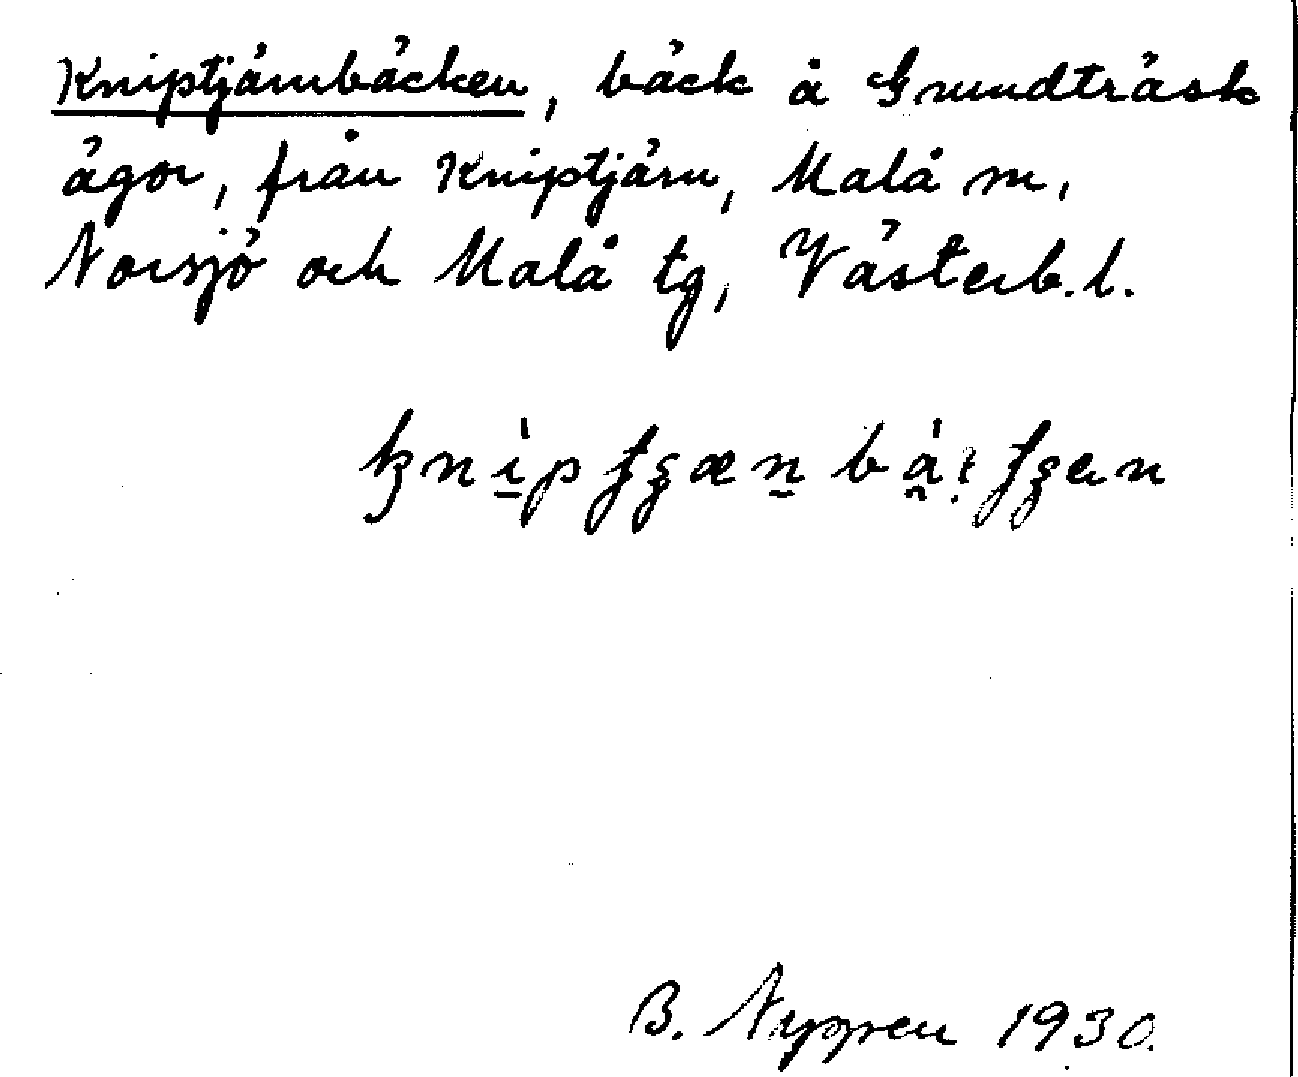 Kniptjärnbäcken, bäck å Grundträsk
ägor, från Kniptjärn, Malå sn,
Norsjö och Malå tg, Västerb. l.
B. Nyppen 1930.